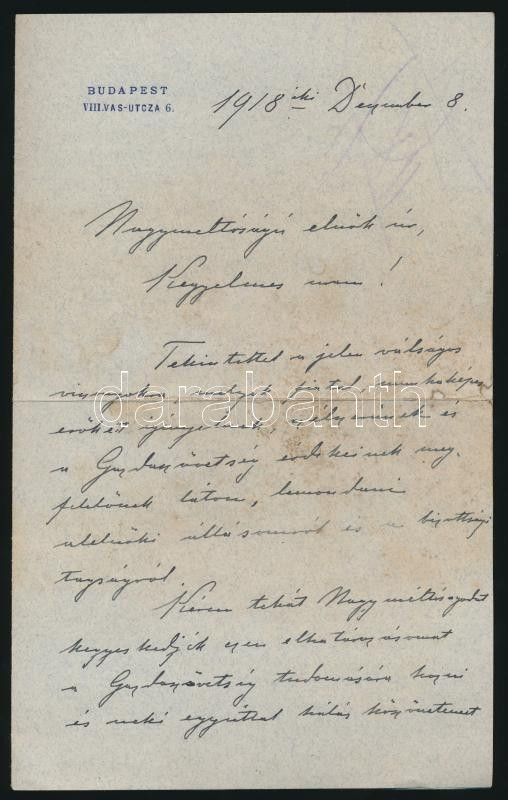 BUDAPEST
VIII.VAS-UTCZA 6.
1918 iki Dezember 8.
Nagyméltóságú elnök úr,
Kegyelmes uram!
Tekintettel a jelen válságos
viszonyokra, melyek fiatal, munkaképes
erőket igényelnek, célszerűnek és
a Gazdaszövetség érdekeinek meg-
felelőnek látom, lemondani
alelnöki állásomról és a bizottsági
tagságról.
Kérem tehát Nagyméltóságodat
kegyeskedjék ezen elhatározásomat
a Gazdaszövetség tudomására hozni
és neki egyúttal hálás köszönetemet
darabanth